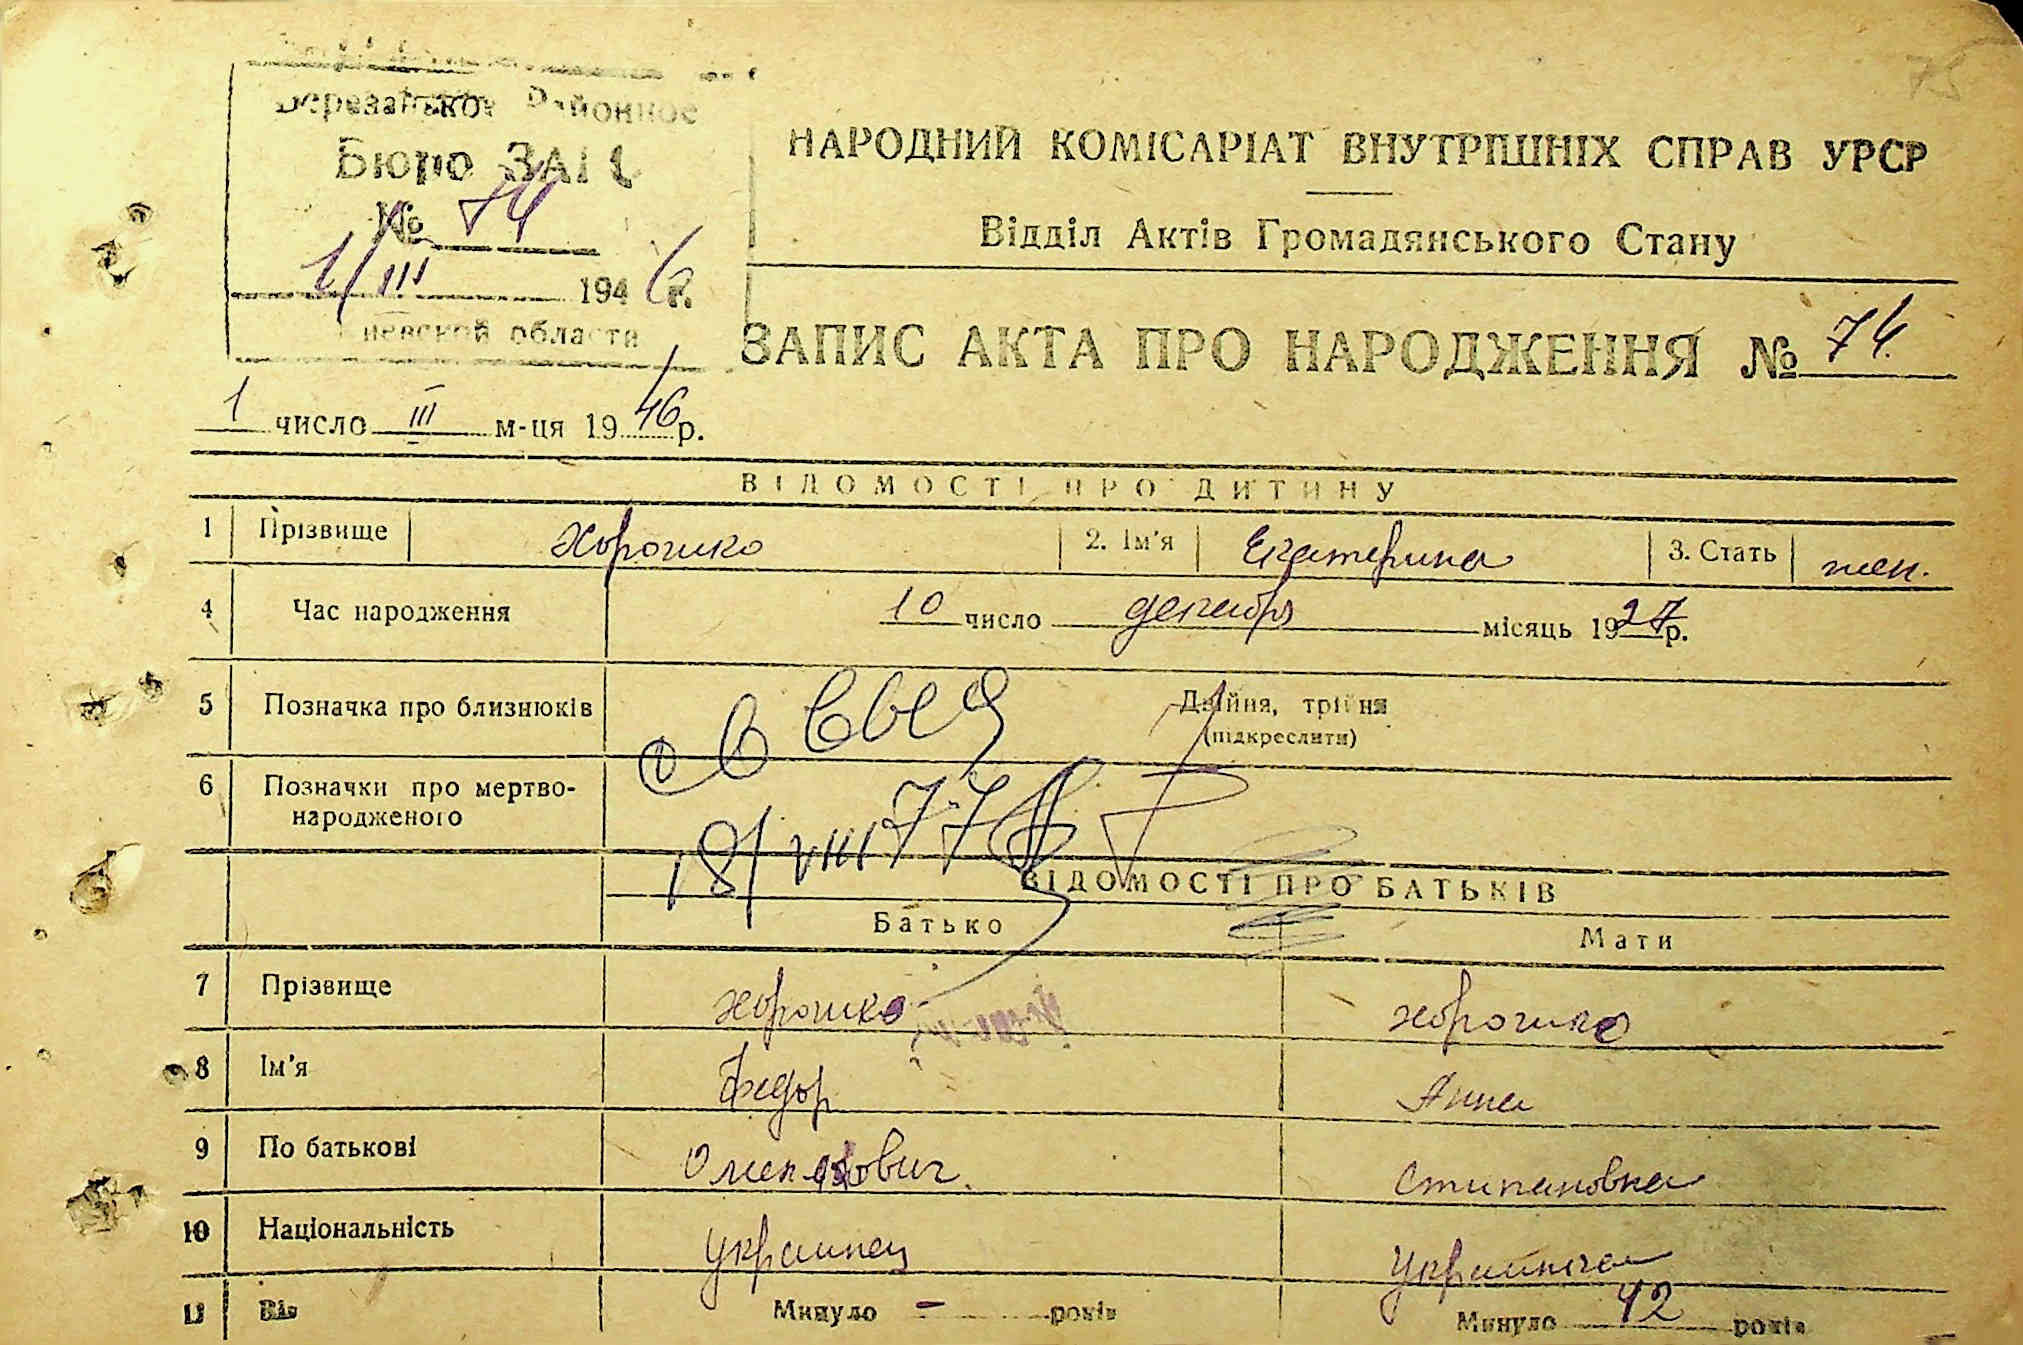 75
Районное
Бюро ЗАГС
№ 74
1/III 1946 г.
области
НАРОДНИЙ КОМІСАРІАТ ВНУТРІШНІХ СПРАВ УРСР
Відділ Актів Громадянського Стану
ЗАПИС АКТА ПРО НАРОДЖЕННЯ № 74
1 число III м-ця 1946 р.
ВІДОМОСТІ ПРО ДИТИНУ
1 Прізвище Хорошко 2. Ім'я Екатерина 3. Стать жен.
4 Час народження 10 число декабря місяць 1927 р.
5 Позначка про близнюків Двійня, трійня
(підкреслити)
6 Позначки про мертво-
народженого
18/VIII 77
ВІДОМОСТІ ПРО БАТЬКІВ
Батько Мати
7 Прізвище Хорошко Хорошко
8 Ім'я Федор Анна
9 По батькові Стипановна
10 Національність Украинец Украинка
11 Вік Минуло - років Минуло 42 років